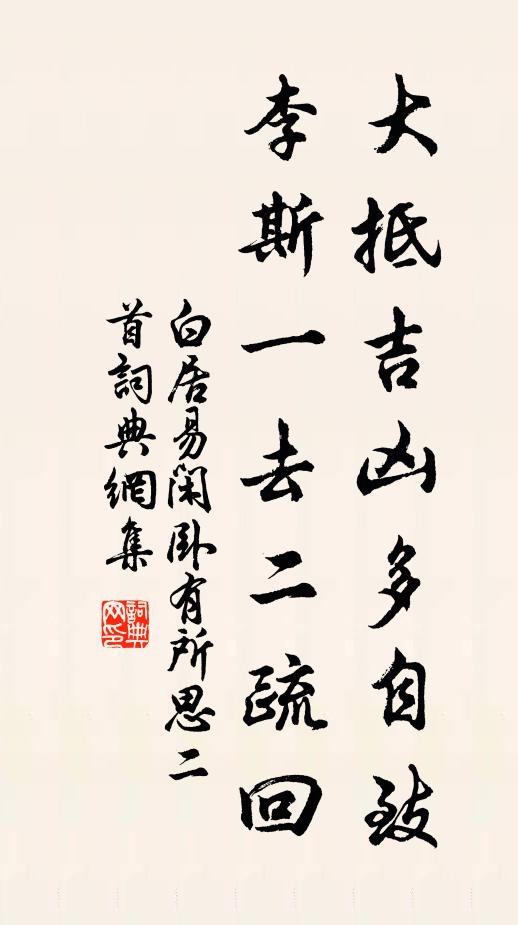 大抵吉凶多自致
李斯一去二疏回
白居易閑臥有所思二
首詞典網集
詞典
网印